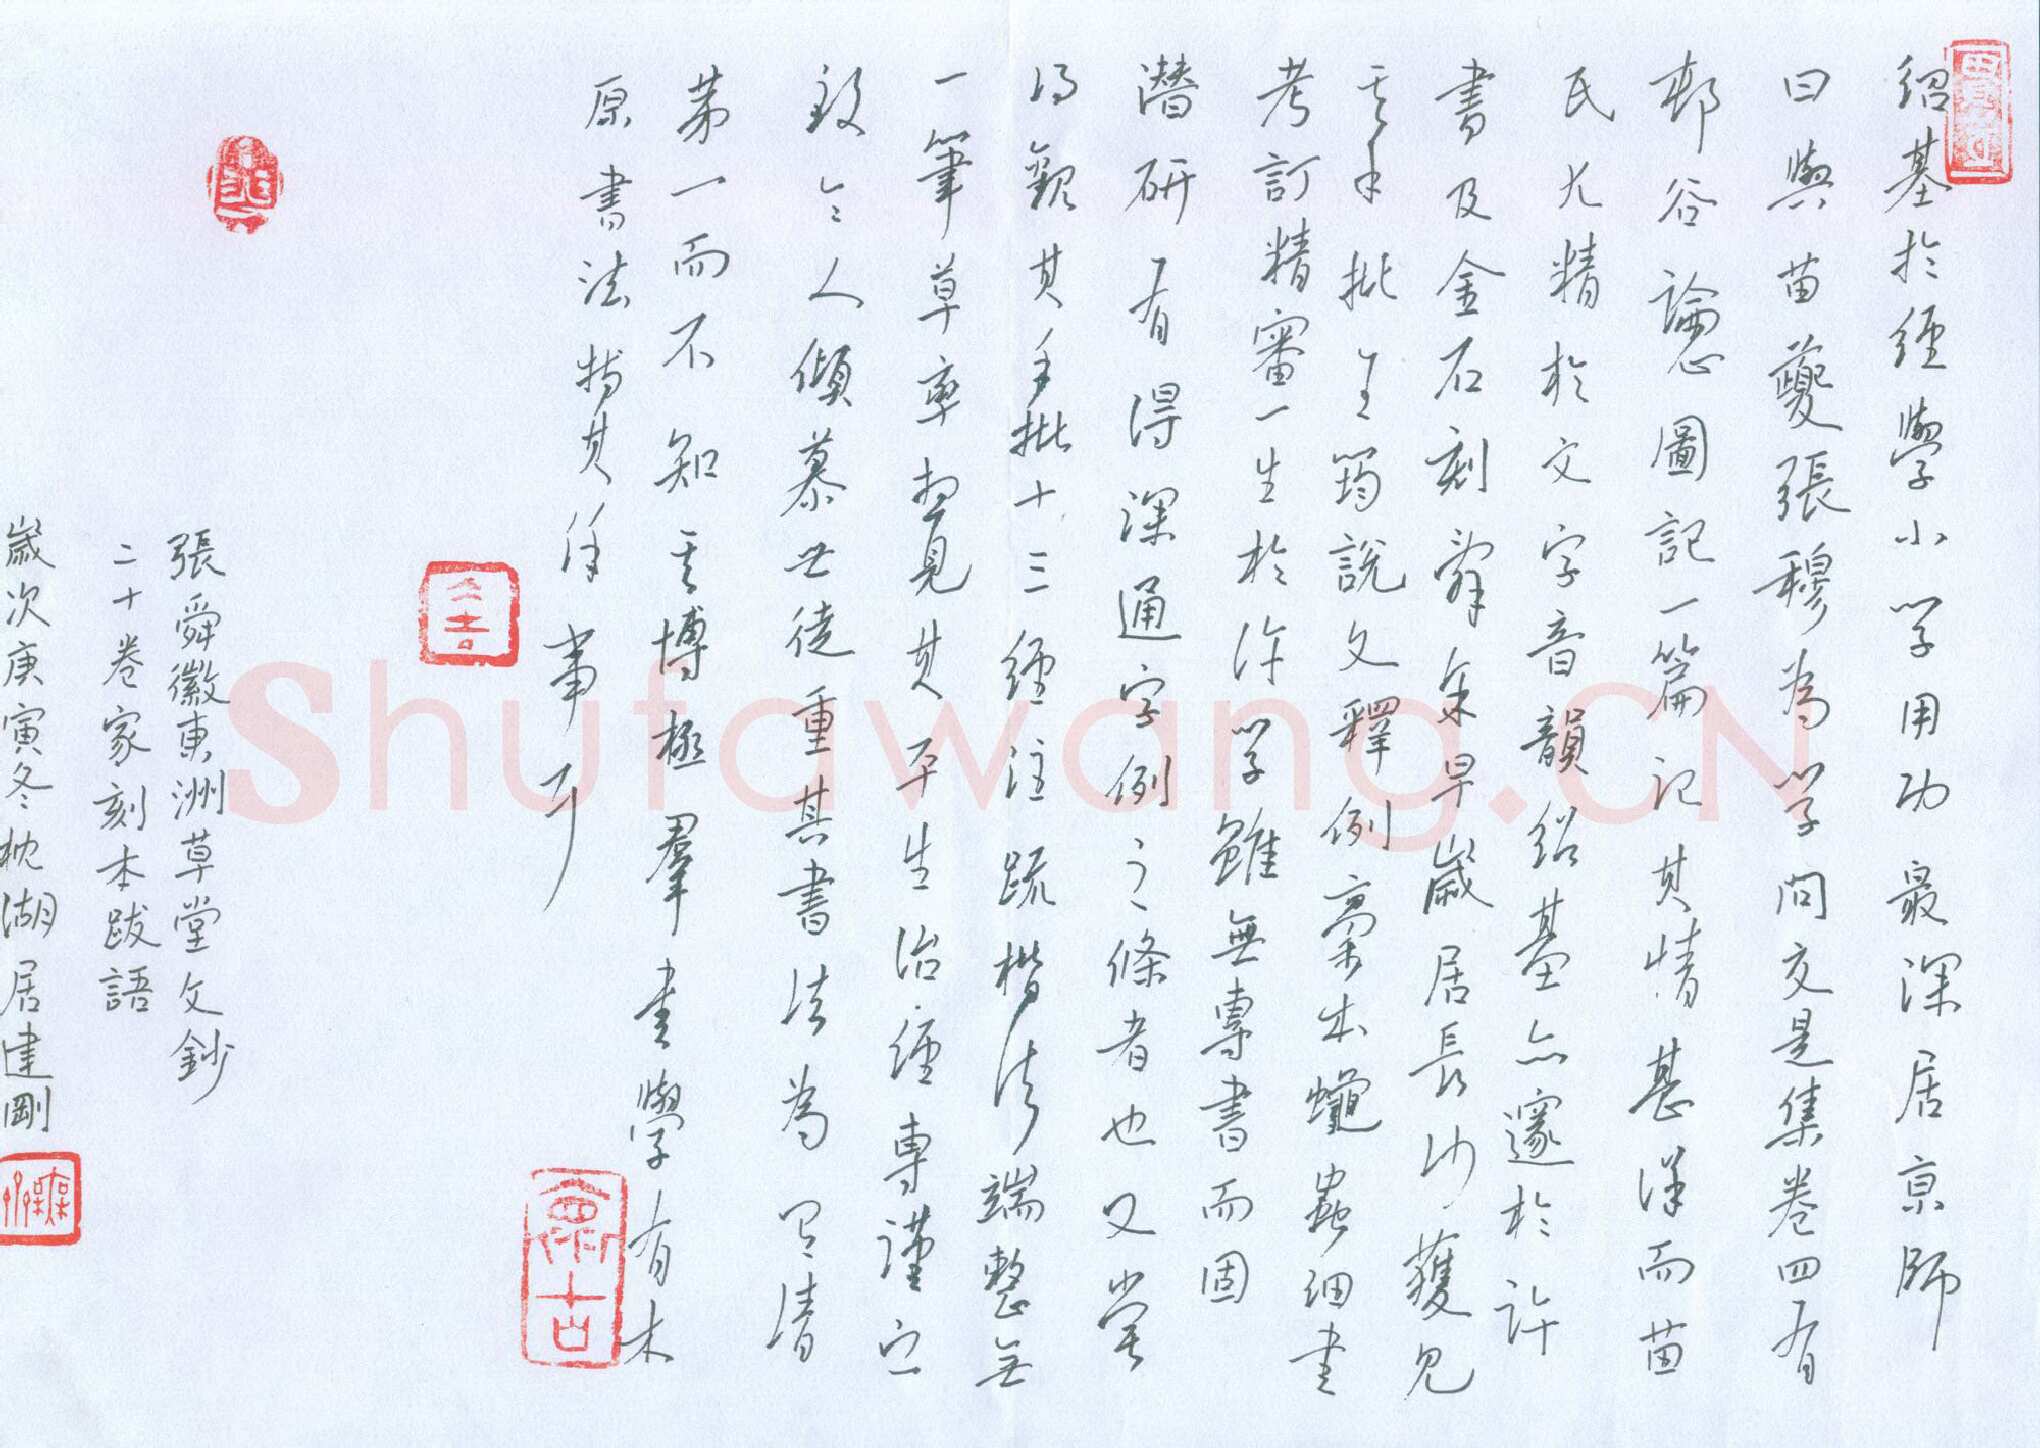 紹基於經學小學用功最深居京師
日與苗夔張穆為學問交是集卷四有
邨谷論心圖記一篇記其情甚詳而苗
氏尤精於文字音韻紹基亦邃於許
書及金石刻辭余早歲居長沙獲見
其手批王筠說文釋例稾本蠅蟲細書
考訂精審一生於許學雖無專書而固
潛研有得深通字例之條者也又嘗
得觀其手批十三經注疏楷法端整無
一筆草率想見其平生治經專謹之
致令人傾慕世徒重其書法為有清
第一而不知其博極羣書學有本
原書法特其餘事耳
懷古
張舜徽東洲草堂文鈔
二十卷家刻本跋語
歲次庚寅冬枕湖居建剛
Shufawang.CN